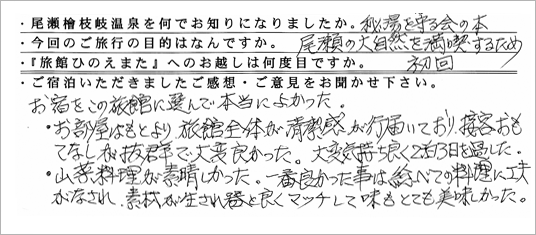 ・尾瀬檜枝岐温泉を何でお知りになりましたか。秘湯を守る会の本
・今回のご旅行の目的はなんですか。 尾瀬の大自然を満喫するため
・『旅館ひのえまた』へのお越しは何度目ですか。 初回
・ご宿泊いただきましたご感想・ご意見をお聞かせ下さい。
お宿をこの旅館に選んで本当によかった。
・お部屋はもとより、旅館全体が清潔感が行届いており、接客おも
てなしが抜群で大変良かった。大変気持ち良く2泊3日を過した。
・山人料理が素晴しかった。一番良かった事は、総べての料理に工夫
がなされ、素材が生され器と良くマッチして味もとても美味しかった。